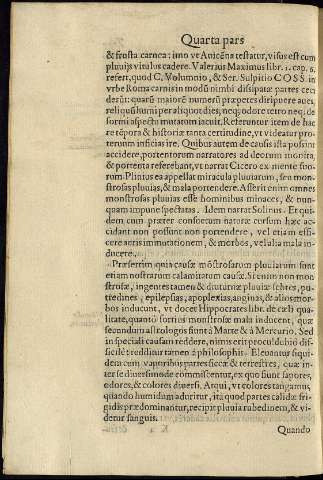 Quarta pars
& frusta carnea: imo vt Auicēna testatur, visus est cum
pluuijs vitulus cadere. Valerius Maximus libr. 1. cap. 6.
refert, quod C. Volumnio, & Ser. Sulpitio COSS. in
vrbe Roma carnis in modū nimbi dissipatæ partes ceci
derūt: quarū maiorē numerū præpetes diripuere aues,
reliquū humi per aliquot dies, neq; odore tetro neq; de
formi aspectu mutatum iacuit. Referuntur item de hac
re tēpora & historiæ tanta certitudine, vt videatur pro
teruum inficias ire. Quibus autem de causis ista possint
accidere, portentorum narratores ad deorum monita,
& portenta referebant, vt narrat Cicero ex mente eo-
rum. Plinius ea appellat miracula pluuiarum, seu mon
strosas pluuias, & mala portendere. Asserit enim omnes
monstrosas pluuias esse hominibus minaces, & nun-
quam impune spectatas. Idem narrat Solinus. Et qui-
dem cum præter consuetum naturæ cursum hæc ac-
cidant non possunt non portendere, vel etiam effi-
cere aeris immutationem, & morbos, vel alia mala in-
ducere.
Præsertim quia causæ mōstrosarum pluuiarum sunt
etiam nostrarum calamitatum causæ. Si enim non mon
strosæ, ingentes tamen & diuturnæ pluuiæ febres, pu-
tredines, epilepsias, apoplexias, anginas, & alios mor-
bos inducunt, vt docet Hippocrates libr. de cæli qua-
litate, quantò fortius monstrosæ mala inducent, quæ
secundum astrologis siunt à Marte & à Mercurio. Sed
in speciali causam reddere, nimis erit procul dubio dif-
ficile: redditur tamen à philosophis. Eleuantur siqui-
dem cum vaporibus partes siccæ & terrestres, quæ in-
ter se diuersimode commiscentur, ex quo fiunt sapores,
odores, & colores diuersi. Atqui, vt colores tangamus,
quando humidum aduritur, ita quod partes calidæ fri-
gidis prædominantur, recipit pluuia rubedinem, & vi-
detur sanguis.
Quando